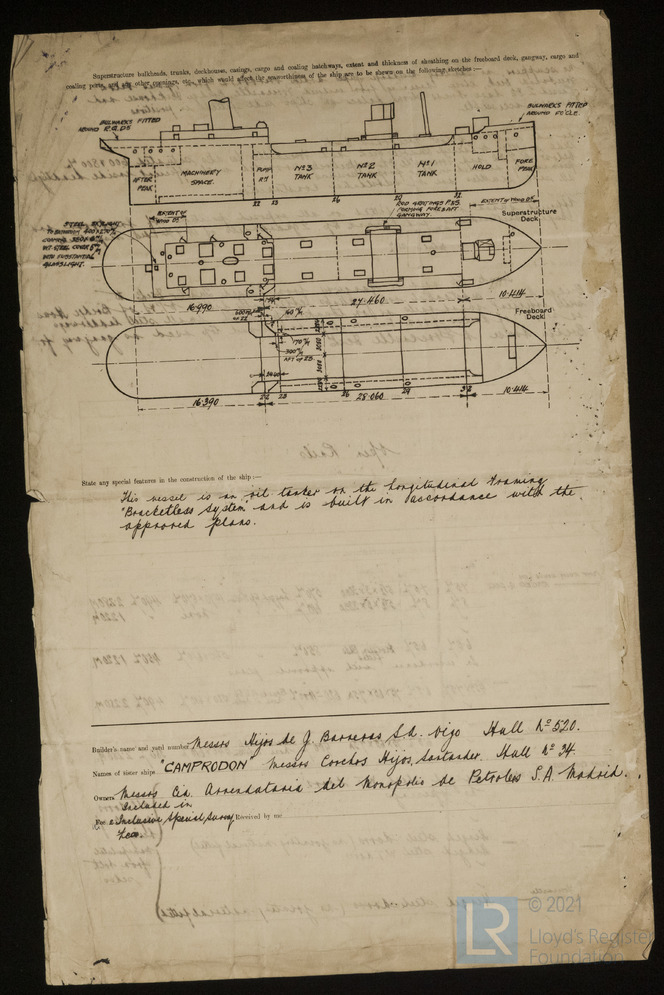 Superstructure bulkheads, trunks, deckhouses, casings, cargo and coaling hatchways, extent and thickness of sheathing on the freeboard deck, gangway, cargo and
coaling ports, and any other openings, etc., which would affect the seaworthiness of the ship are to be shewn on the following sketches:—
BULWARKS FITTED
AROUND R.Q.DK
BULWARKS FITTED
AROUND FC'CLE.
AFTER
PEAK
MACHINERY
SPACE.
PUMP
RM
Nº3
TANK
Nº2
TANK
Nº1
TANK
HOLD
FORE
PEAK
22 23 26 29 32
EXTENT OF
WOOD DK
STEEL SKYLIGHT
GLASSLIGHT.
FORMING FORE & AFT
GANGWAY.
EXTENT OF WOOD DK
Superstructure
Deck
16.990
27.460
10.414
Freeboard
Deck
AFT OF 23
22 23 26 29 32
16.390
28.060
10.414
State any special features in the construction of the ship:—
This vessel is an oil tanker on the longitudinal framing
"Bracketless System" and is built in accordance with the
approved plans.
Builder's name and yard number Messrs Hijos de J. Barreras S.A. Vigo Hull Nº 520.
Names of sister ships "CAMPRODON" Messrs Corchos Hijos, Santander. Hull Nº 34
Owners Messrs Cia. Arrendataria del Monopolio de Petroleos S.A. Madrid.
Included in
Fee £ Inclusive Special Survey Received by me
Fee.
LR
© 2021
Lloyd's Register
Foundation